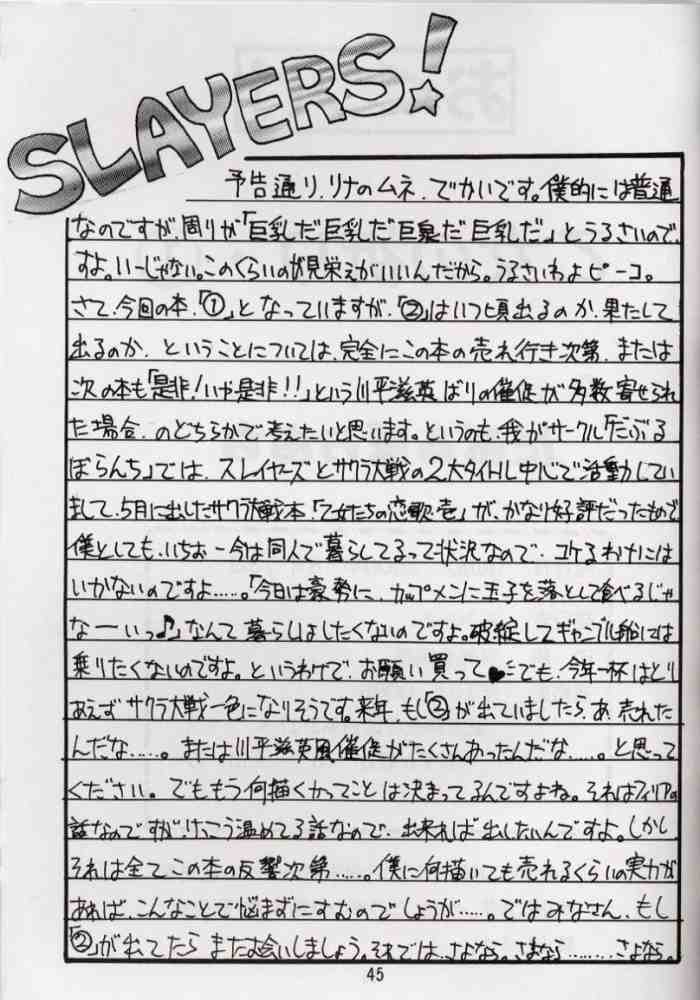 SLAYERS!
予告通り、リナのムネ、でかいです。僕的には普通
なのですが、周りが「巨乳だ巨乳だ巨泉だ巨乳だ」とうるさいので
すよ。いーじゃない。このくらいのが見栄えがいいんだから。うるさいわよピーコ。
さて、今回の本、「①」となっていますが、「②」はいつ頃出るのか、果たして
出るのか、ということについては、完全にこの本の売れ行き次第、または
次の本も「是非!いや是非!!」という川平滋英ばりの催促が多数寄せられ
た場合、のどちらかで考えたいと思います。というのも、我がサークル「だぶる
ぼらんち」では、スレイヤーズとサクラ大戦の2大タイトル中心で活動してい
まして、5月に出したサクラ大戦本「乙女たちの恋歌壱」が、かなり好評だったもので
僕としても、いちおー今は同人で暮らしてるって状況なので、コケるわけには
いかないのですよ……。「今日は豪勢に、カップメンに玉子を落として食べるじゃ
なーいっ♪」なんて暮らしはしたくないのですよ。破綻してギャンブル船には
乗りたくないのですよ。というわけで、お願い買って♥でも、今年一杯はとり
あえずサクラ大戦一色になりそうです。来年、もし「②」が出ていましたら、あ、売れた
んだな……。または川平滋英風催促がたくさんあったんだな……。と思って
ください。でももう何描くかってことは決まってるんですよね。それはフィリアの
話なのですが、けっこう温めてる話なので、出来れば出したいんですよ。しかし
それは全てこの本の反響次第……。僕に何描いても売れるくらいの実力が
あれば、こんなことで悩まずにすむのでしょうが……。ではみなさん、もし
「②」が出てたらまたお会いしましょう。それでは、さよなら。さよなら………さよなら。
45